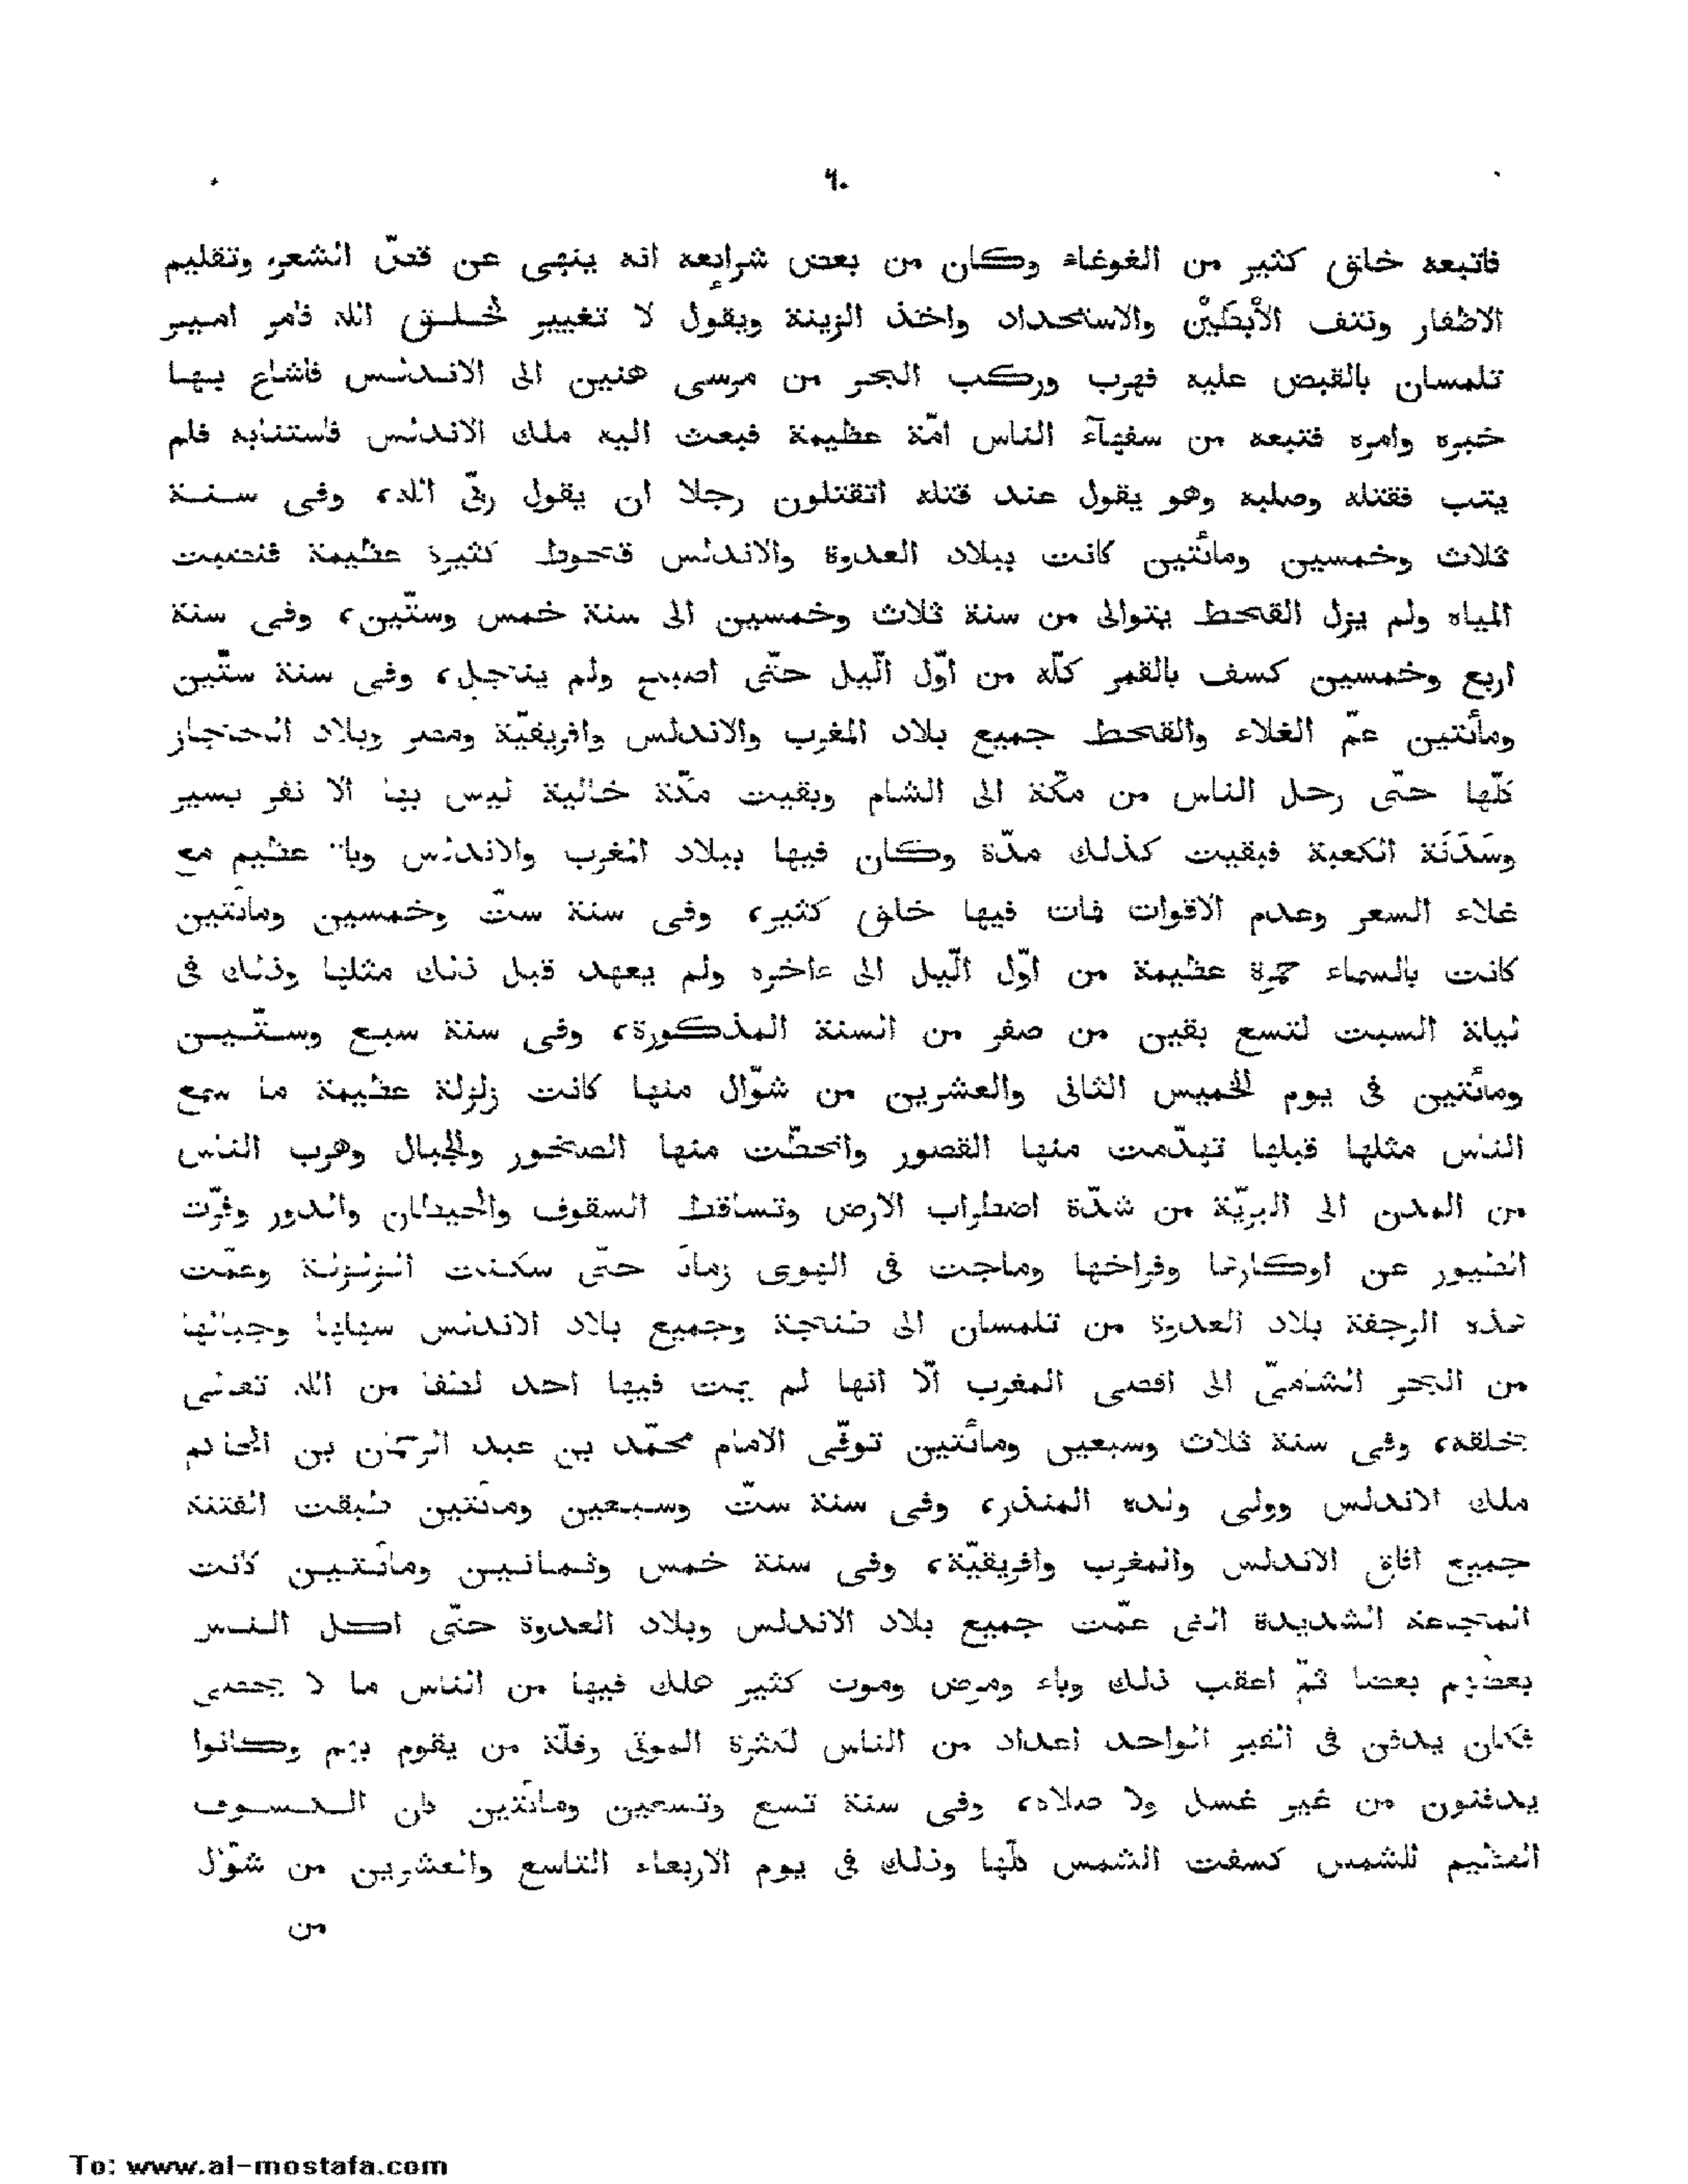 ٦٠
فاتبعه خلق كثير من الغوغاء وكان من بعض شرايعه انه ينهى عن قصّ الشعر وتقليم
الاظفار ونتف الأبْطَيْن والاستحداد واخذ الزينة ويقول لا تغيير لخلق الله فامر امير
تلمسان بالقبض عليه فهرب وركب البحر من مرسى هنين الى الاندلس فاشاع بها
خبره وامره فتبعه من سفهآء الناس امّة عظيمة فبعث اليه ملك الاندلس فاستتابه فلم
يتب فقتله وصلبه وهو يقول عند قتله اتقتلون رجلا ان يقول ربّى الله، وفى سنة
ثلاث وخمسين ومأتتين كانت ببلاد العدوة والاندلس قحوط كثيرة عظيمة فنضبت
المياه ولم يزل القحط يتوالى من سنة ثلاث وخمسين الى سنة خمس وستّين، وفى سنة
اربع وخمسين كسف بالقمر كلّه من اوّل الّيل حتّى اصبح ولم ينجل، وفى سنة ستّين
ومأتتين عمّ الغلاء والقحط جميع بلاد المغرب والاندلس وافريقيّة ومصر وبلاد الحجاز
كلّها حتّى رحل الناس من مكّة الى الشام وبقيت مكّة خالية ليس بها الا نفر يسير
وسَدَنَة الكعبة فبقيت كذلك مدّة وكان فيها ببلاد المغرب والاندلس وباء عظيم مع
غلاء السعر وعدم الاقوات فات فيها خلق كثير، وفى سنة ستّ وخمسين ومأتتين
كانت بالسماء حمرة عظيمة من اوّل الّيل الى ءاخره ولم يعهد قبل ذلك مثلها وذلك فى
ليلة السبت لتسع بقين من صفر من السنة المذكورة، وفى سنة سبع وستّين
ومأتتين فى يوم الخميس الثانى والعشرين من شوّال منها كانت زلزلة عظيمة ما سمع
الناس مثلها قبلها تهدّمت منها القصور وانحطّت منها الصخور والجبال وهرب الناس
من المدن الى البريّة من شدّة اضطراب الارض وتساقط السقوف والحيطان والدور وفرّت
الطيور عن اوكارها وفراخها وماجت فى الهوى زمانا حتّى سكنت الزلزلة وعمّت
هذه الرجفة بلاد العدوة من تلمسان الى طنجة وجميع بلاد الاندلس سهلها وجبالها
من البحر الشامىّ الى اقصى المغرب الّا انها لم يمت فيها احد لطفا من الله تعالى
بخلقه، وفى سنة ثلاث وسبعين ومأتتين توفّى الامام محمّد بن عبد الرحمان بن الحاكم
ملك الاندلس وولى ولده المنذر، وفى سنة ستّ وسبعين ومأتتين طبقت الفتنة
جميع افاق الاندلس والمغرب وافريقيّة، وفى سنة خمس وثمانين ومأتتين كانت
المجاعة الشديدة التى عمّت جميع بلاد الاندلس وبلاد العدوة حتّى اكل الناس
بعضهم بعضا ثمّ اعقب ذلك وباء ومرض وموت كثير هلك فيها من الناس ما لا يحصى
فكان يدفن فى القبر الواحد اعداد من الناس لكثرة الموتى وقلّة من يقوم بهم وكانوا
يدفنون من غير غسل ولا صلاه، وفى سنة تسع وتسعين ومأتتين كان الكسوف
العظيم للشمس كسفت الشمس كلّها وذلك فى يوم الاربعاء التاسع والعشرين من شوّال
من
To: www.al-mostafa.com